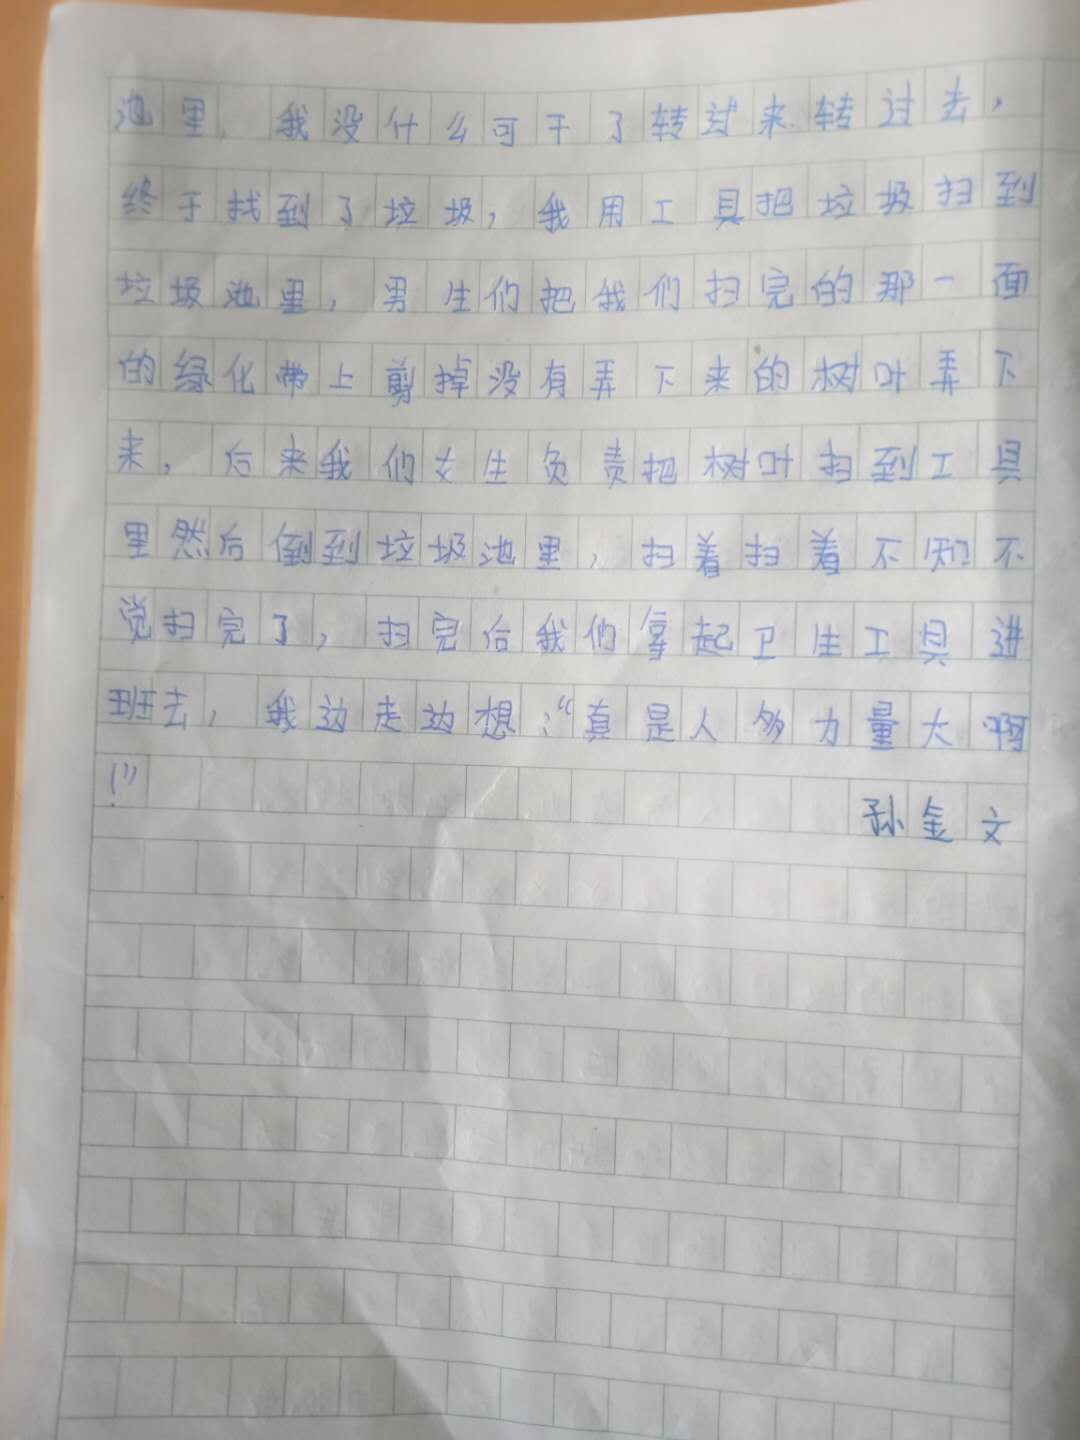 池里，我没什么可干了转过来转过去，
终于找到了垃圾，我用工具把垃圾扫到
垃圾池里，男生们把我们扫完的那一面
的绿化带上剪掉没有弄下来的树叶弄下
来，后来我们女生负责把树叶扫到工具
里然后倒到垃圾池里，扫着扫着不知不
觉扫完了，扫完后我们拿起卫生工具进
班去，我边走边想：“真是人多力量大啊
！”
孙金文